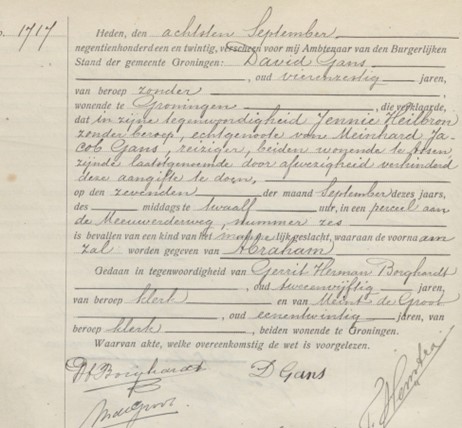 1717
Heden, den achtsten September
negentienhonderd een en twintig, verscheen voor mij Ambtenaar van den Burgerlijken
Stand der gemeente Groningen: David Gans
, oud vierenzestig jaren,
van beroep zonder
wonende te Groningen, die verklaarde,
dat in zijne tegenwoordigheid Jennie Heilbron
zonder beroep, echtgenoote van Meinhard Ja-
cob Gans, reiziger, beiden wonende te Assen
zijnde laatstgenoemde door afwezigheid verhinderd
deze aangifte te doen,
op den zevenden der maand September dezes jaars,
des middags te twaalf uur, in een perceel aan
de Meeuwerderweg, nummer zes
is bevallen van een kind van het mannelijk geslacht, waaraan de voorna am
zal worden gegeven van Abraham
Gedaan in tegenwoordigheid van Gerrit Herman Borghardt
, oud tweeenvijftig jaren,
van beroep klerk en van Meint de Groot
, oud eenentwintig jaren, van
beroep klerk, beiden wonende te Groningen.
Waarvan akte, welke overeenkomstig de wet is voorgelezen.
Borghardt D Gans
MdeGroot